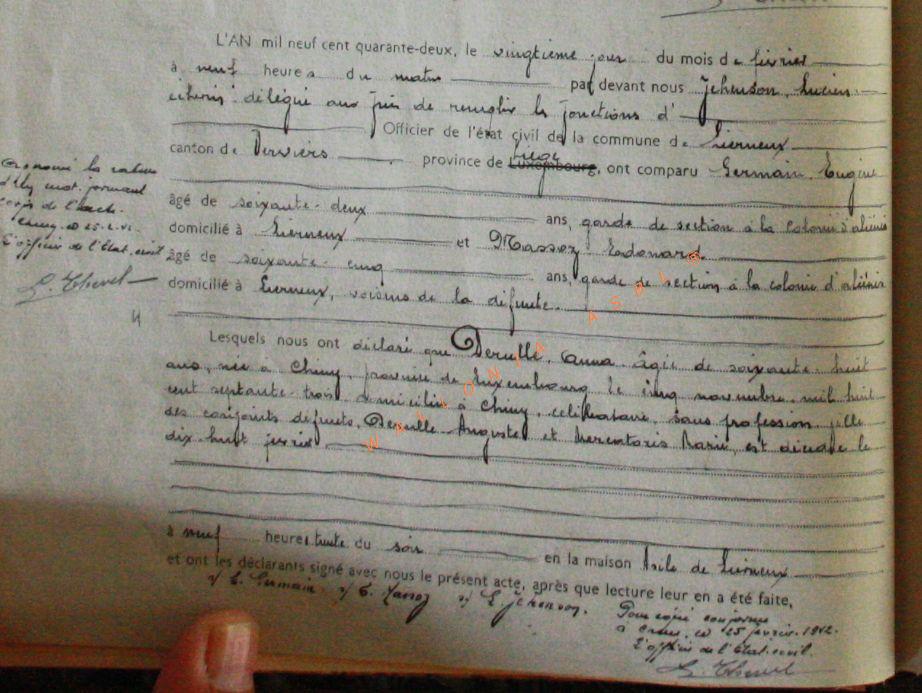 L'AN mil neuf cent quarante-deux, le vingtième jour du mois de février
à neuf heures du matin par devant nous Jehenson, Lucien
échevin délégué aux fins de remplir les fonctions d'
Officier de l'état civil de la commune de Lierneux
canton de Verviers province de Luxembourg, ont comparu Germain, Eugène
Liège
âgé de soixante-deux ans, garde de section à la colonie d'aliénés
domicilié à Lierneux et Massoz Edouard
âgé de soixante-cinq ans, garde de section à la colonie d'aliénés
domicilié à Lierneux, voisins de la défunte.
Lesquels nous ont déclaré que Derulle, Anna âgée de soixante huit
ans, née à Chiny, province de Luxembourg le cinq novembre mil huit
cent septante-trois domiciliée à Chiny, célibataire, sans profession fille
des conjoints défunts, Derulle Auguste et Mercatoris Marie, est décédée le
dix-huit février
à neuf heures trente du soir en la maison Asile de Lierneux
et ont les déclarants signé avec nous le présent acte, après que lecture leur en a été faite,
s/ E. Germain. s/ E. Massoz s/ L. Jehenson.
Pour copie conforme
à Chiny, le 25 février 1942.
L'officier de l'état-civil.
Approuvé la rature
d'un mot formant
corps de l'acte.
Chiny
L'officier de l'Etat civil
WALLONIA ASBL